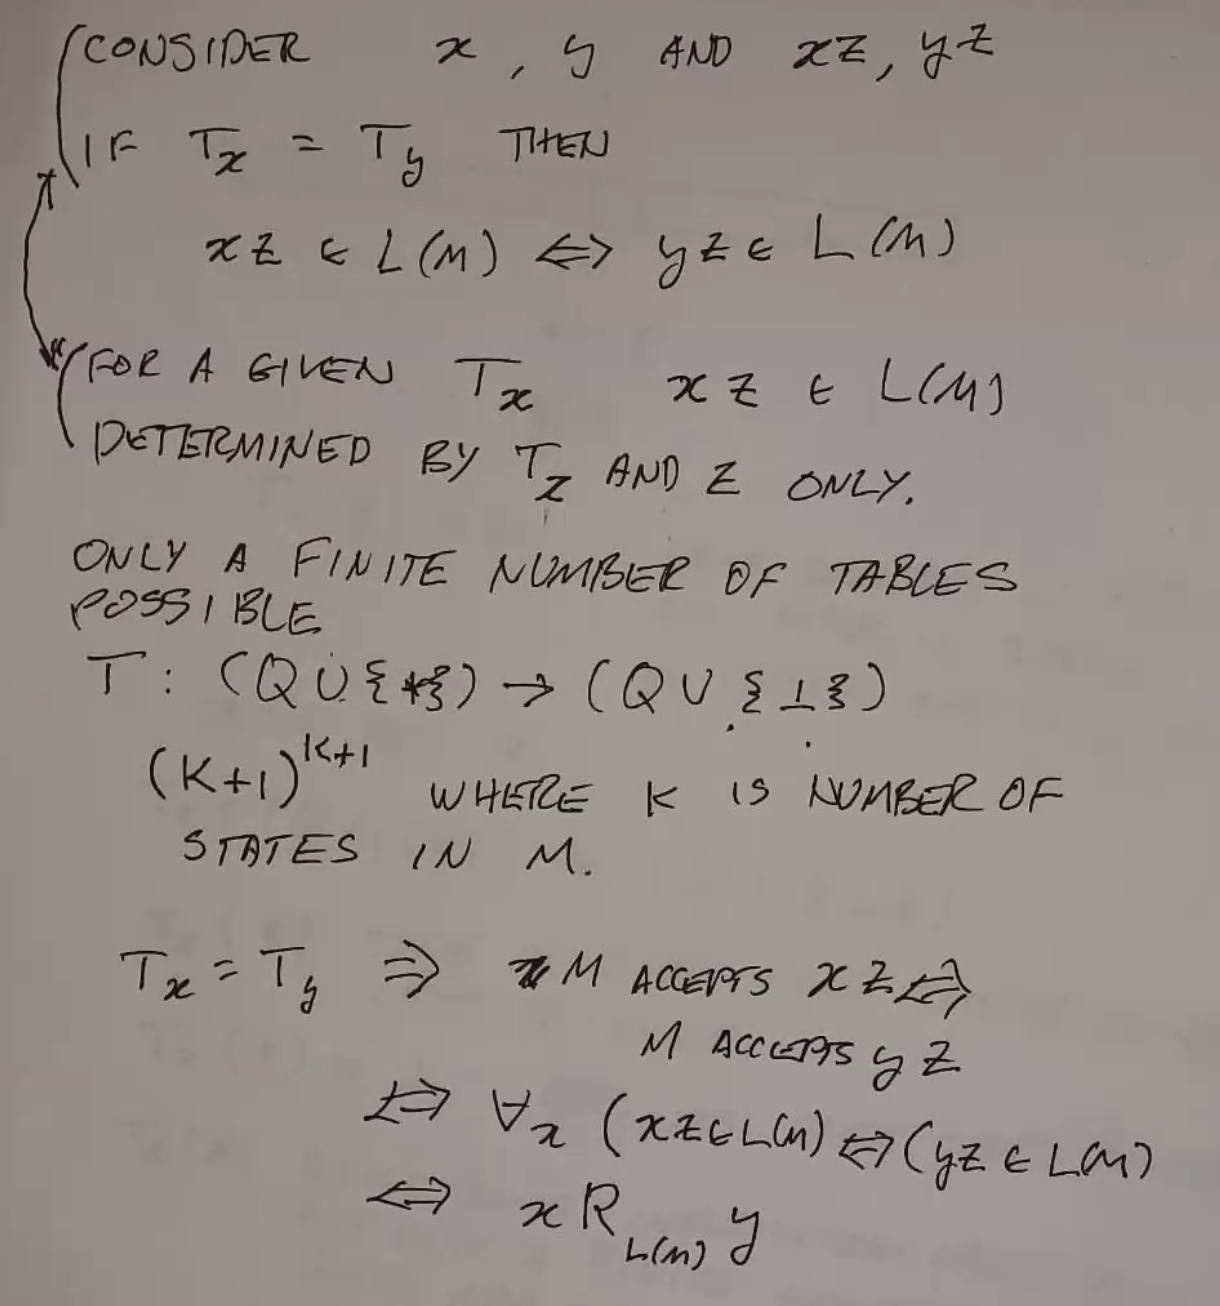 CONSIDER x, y AND xz, yz
IF Tx = Ty THEN
xz ∈ L(M) ⇔ yz ∈ L(M)
FOR A GIVEN Tx xz ∈ L(M)
DETERMINED BY Tz AND z ONLY.
ONLY A FINITE NUMBER OF TABLES
POSSIBLE
T : (Q ∪ {*}) → (Q ∪ {⊥})
(K+1)^K+1 WHERE K IS NUMBER OF
STATES IN M.
Tx = Ty ⇒ M ACCEPTS xz ⇔
M ACCEPTS yz
⇔ ∀x (xz ∈ L(M) ⇔ (yz ∈ L(M)
⇔ x R L(M) y